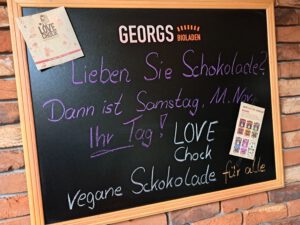 LOVE
CHOCK
GEORGS
BIOLADEN
Lieben Sie Schokolade?
Dann ist Samstag, 11. Nov.,
Ihr Tag!
LOVE
Chock
vegane Schokolade für alle